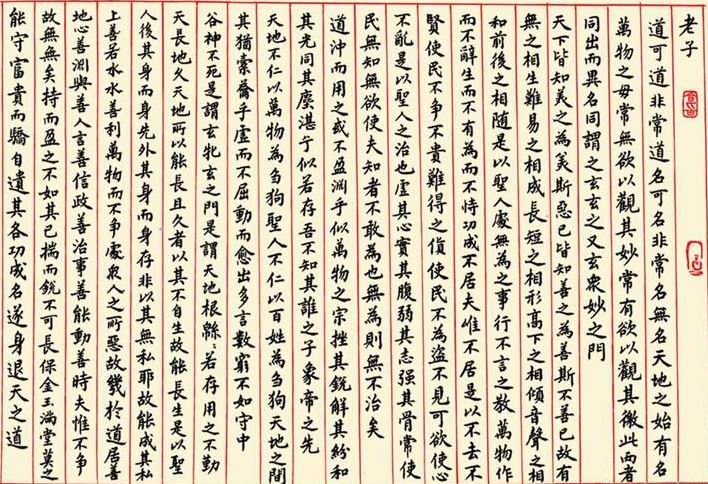 老子
道可道非常道名可名非常名無名天地之始有名
萬物之母常無欲以觀其妙常有欲以觀其徼此兩者
同出而異名同謂之玄玄之又玄衆妙之門
天下皆知美之為美斯惡已皆知善之為善斯不善已故有
無之相生難易之相成長短之相形高下之相傾音聲之相
和前後之相隨是以聖人處無為之事行不言之教萬物作
而不辭生而不有為而不恃功成不居夫惟不居是以不去不
賢使民不爭不貴難得之貨使民不為盜不見可欲使心
不亂是以聖人之治也虛其心實其腹弱其志强其骨常使
民無知無欲使夫知者不敢為也無為則無不治矣
道沖而用之或不盈淵乎似萬物之宗挫其銳解其紛和
其光同其塵湛兮似若存吾不知其誰之子象帝之先
天地不仁以萬物為芻狗聖人不仁以百姓為芻狗天地之間
其猶橐籥乎虛而不屈動而愈出多言數窮不如守中
谷神不死是謂玄牝玄之門是謂天地根緜〻若存用之不勤
天長地久天地所以能長且久者以其不自生故能長生是以聖
人後其身而身先外其身而身存非以其無私耶故能成其私
上善若水水善利萬物而不爭處衆人之所惡故幾於道居善
地心善淵與善人言善信政善治事善能動善時夫惟不爭
故無無矣持而盈之不如其已揣而銳不可長保金玉滿堂莫之
能守富貴而驕自遺其各功成名遂身退天之道